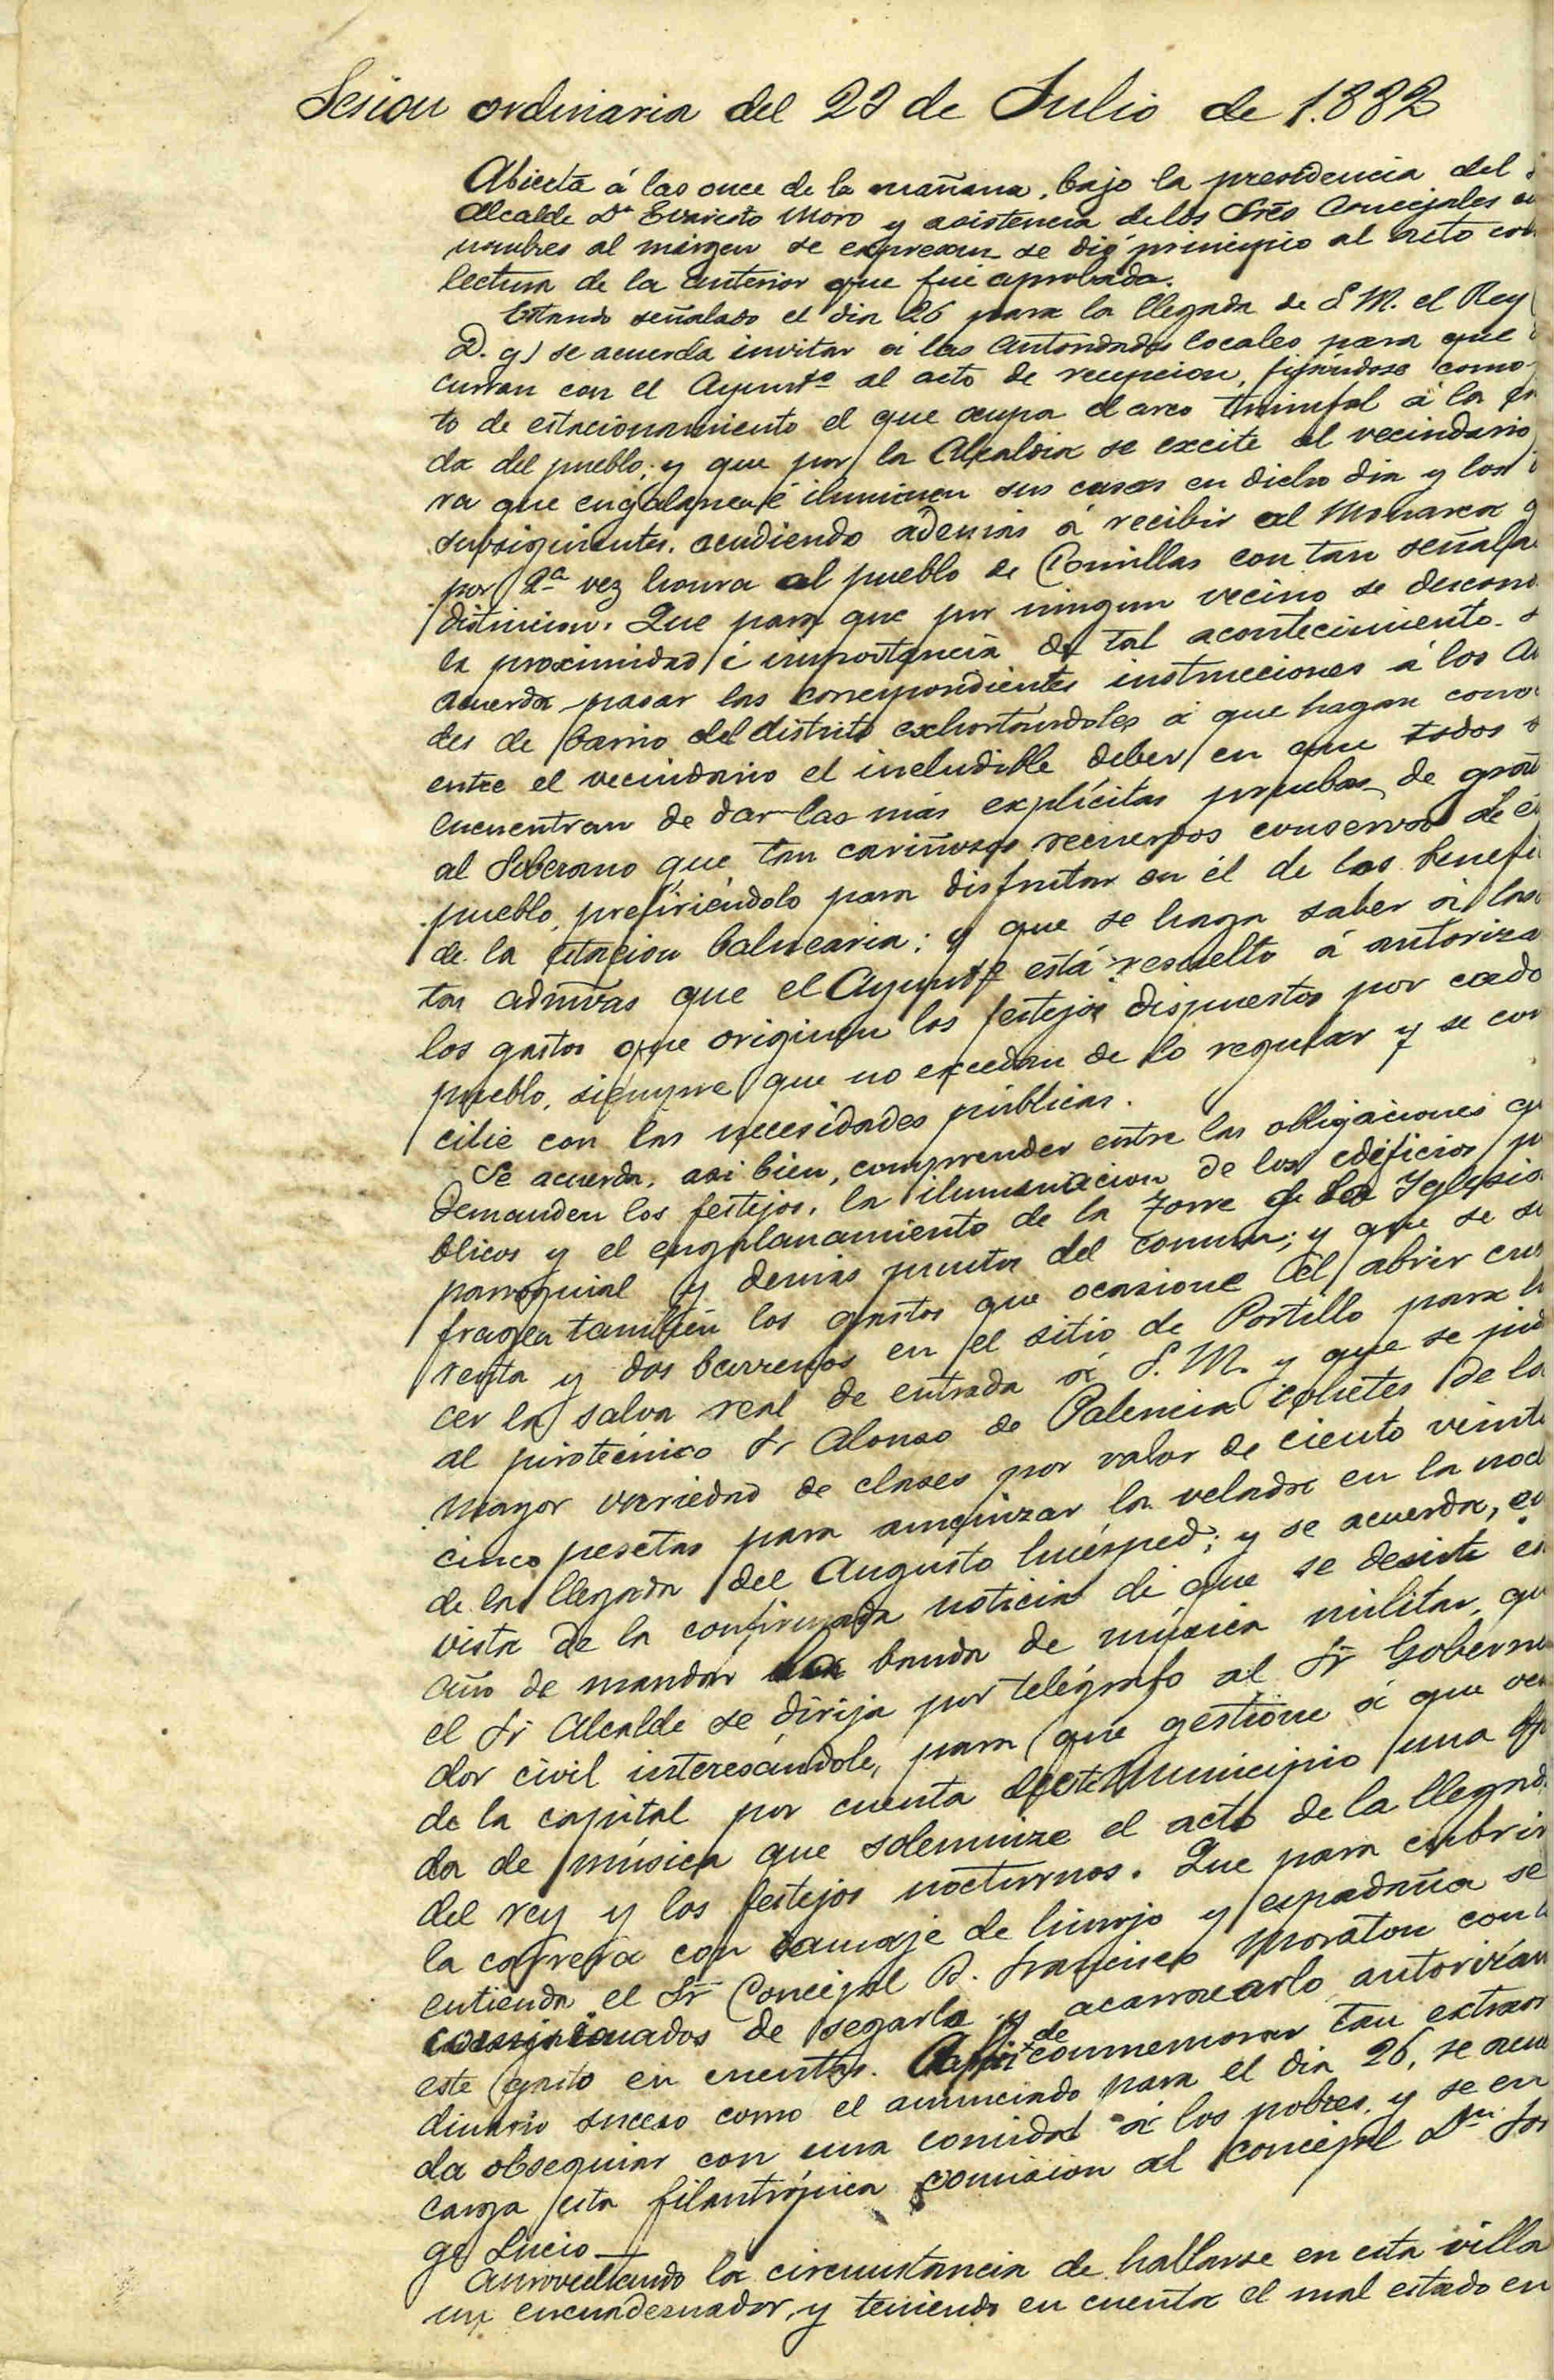 Sesion ordinaria del 23 de Julio de 1.882
Abierta á las once de la mañana, bajo la presidencia del
Alcalde Dn Evaristo Moro y asistencia de los Sres Concejales cu
nombres al márgen se expresan se dió principio al acto con
lectura de la anterior que fué aprobada.
Estando señalado el dia 26 para la llegada de S. M. el Rey (
D. g) se acuerda invitar á las Autoridades locales para que
curran con el Ayuntº al acto de recepcion, fijándose como
to de estacionamiento el que ocupa el arco triunfal á la en
da del pueblo; y que por la Alcaldia se excite al vecindario
ra que engalanen é iluminen sus casas en dicho dia y los
subsiguientes, acudiendo además á recibir al Monarca q
por 2ª vez honra al pueblo de Comillas con tan señala
distincion. Que para que por ningun vecino se descono
la proximidad é importancia de tal acontecimiento, s
acuerda pasar las correspondientes instrucciones á los Al
des de barrio del distrito exhortándoles á que hagan cono
entre el vecindario el ineludible deber en que todos s
encuentran de dar las más explícitas pruebas de grat
al Soberano que tan cariñosos recuerdos conserva de és
pueblo, prefiriéndolo para disfrutar en él de los benefi
de la estacion balnearia; y que se haga saber á las
tas admvas que el Ayuntº está resuelto á autoriza
los gastos que originen los festejos dispuestos por cada
pueblo, siempre que no excedan de lo regular y se con
cilie con las necesidades públicas.
Se acuerda, asi bien, comprender entre las obligaciones qu
demanden los festejos, la iluminacion de los edificios pú
blicos y el engalanamiento de la Torre de la Iglesia
parroquial y demás puntos del comun; y que se su
fraguen tambien los gastos que ocasione el abrir cua
renta y dos barrenos en el sitio de Portillo para ha
cer la salva real de entrada á S. M. y que se pid
al pirotécnico Sr Alonso de Palencia cohetes de la
mayor variedad de clases por valor de ciento veinti
cinco pesetas para amenizar la velada en la noch
de la llegada del Augusto huésped; y se acuerda, en
vista de la confirmada noticia de que se desiste és
año de mandar la banda de música militar, que
el Sr Alcalde se dirija por telégrafo al Sr Goberna
dor civil interesándole, para que gestione á que ven
de la capital por cuenta de este Municipio una ban
da de música que solemnize el acto de la llegada
del rey y los festejos nocturnos. Que para cubrir
la carrera con ramaje de hinojo y espadaña se
entienda el Sr Concejal D. Francisco Moraton con l
comisionados de segarla y acarrearlo autorizán
este gasto en cuentas. A fin de conmemorar tan extraor
dinario suceso como el anunciado para el dia 26, se acuer
da obsequiar con una comida á los pobres, y se en
carga esta filantrópica comision al concejal Dn Jor
ge Lucio
Aprovechando la circunstancia de hallarse en esta villa
un encuadernador, y teniendo en cuenta el mal estado en